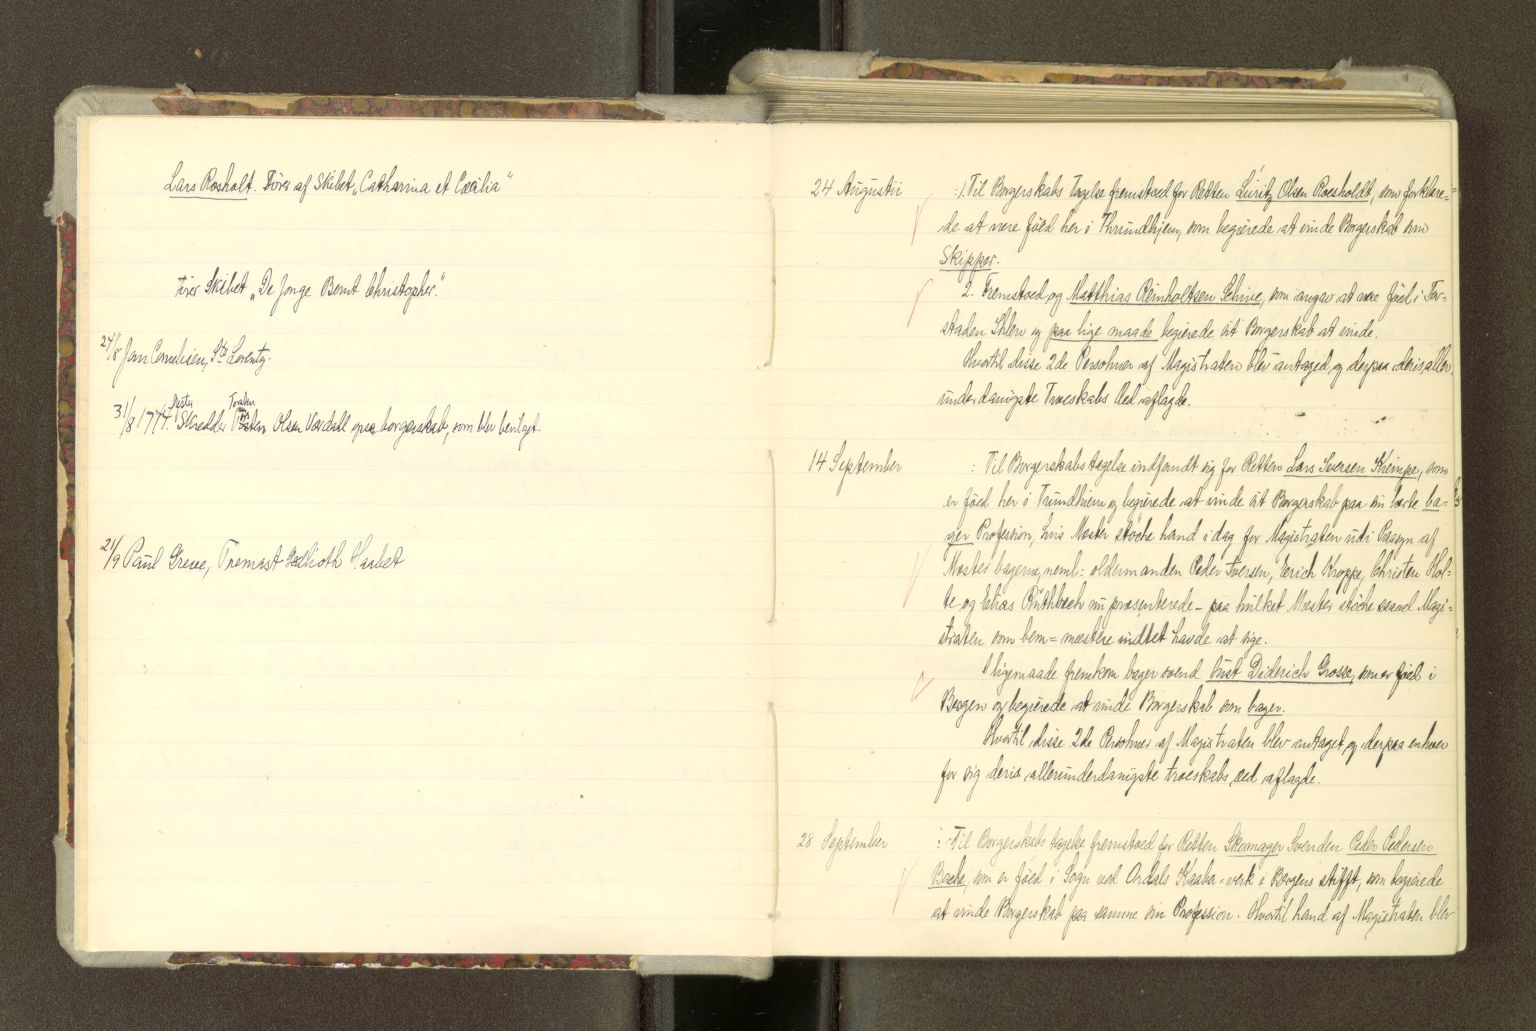 Lars Rosholt. Fører af Skibet „Catharina et Cæcilia"
fører Skibet „De Jonge Bernt Christopher."
24/8 Jan Cornelisen, St. Lorentz.
Mester Torsten
31/8 1774. Skredder Olsen Værdahl opsa borgerskab, som blev bevilget
21/9 Paul Greve, Tremast Galioth Haabet
24 Augustii
:1. Til Borgerskabs Tagelse fremstoed for Retten Lüritz Olsen Roesholdt, som forklare-
de at være föed her i Thrundhjem, som begiærede at vinde Borgerskab som
Skipper.
2. Fremstoed og Matthias Reinholtsen Schive, som angav at være föed i For-
staden Ihlen og paa lige maade begiærede sit Borgerskab at vinde.
Hvortil disse 2de Persohner af Magistraten blev antaged og derpaa deris aller
underdanigste Troeskabs Ved aflagde.
14 September
: Til Borgerskabs tagelse indfandt sig for Retten Lars Iversen Krempe, som
er föed her i Trundhiem og begiærede at vinde sit Borgerskab paa sin lærte ba-
ger Profession, hvis Mester støche hand i dag for Magistraten udi Paasyn af
Mester bagerne, neml: oldermanden Peder Iversen, Erich Kroppe, Christen Hol-
te og Elias Rüthbech nu præsenterede - paa hvilket Mester støche saavel Magi-
straten som bem= mestere indtet havde at sige.
I ligemaade fremkom bager svend Just Diderich Grosse, som er föed i
Bergen og begiærede at vinde Borgerskab som bager.
Hvortil disse 2de Persohner af Magistraten blev antaget og derpaa enhver
for sig deris allerunderdanigste troeskabs eed aflagde.
28 September
: Til Borgerskabs tagelse fremstoed for Retten Skomager Svenden Peder Pedersen
Bache, som er föed i Sogn ved Ardals Kaaber-verk i Bergens stifft, som begiærede
at vinde Borgerskab paa samme sin Profession. Hvortil hand af Magistraten blev